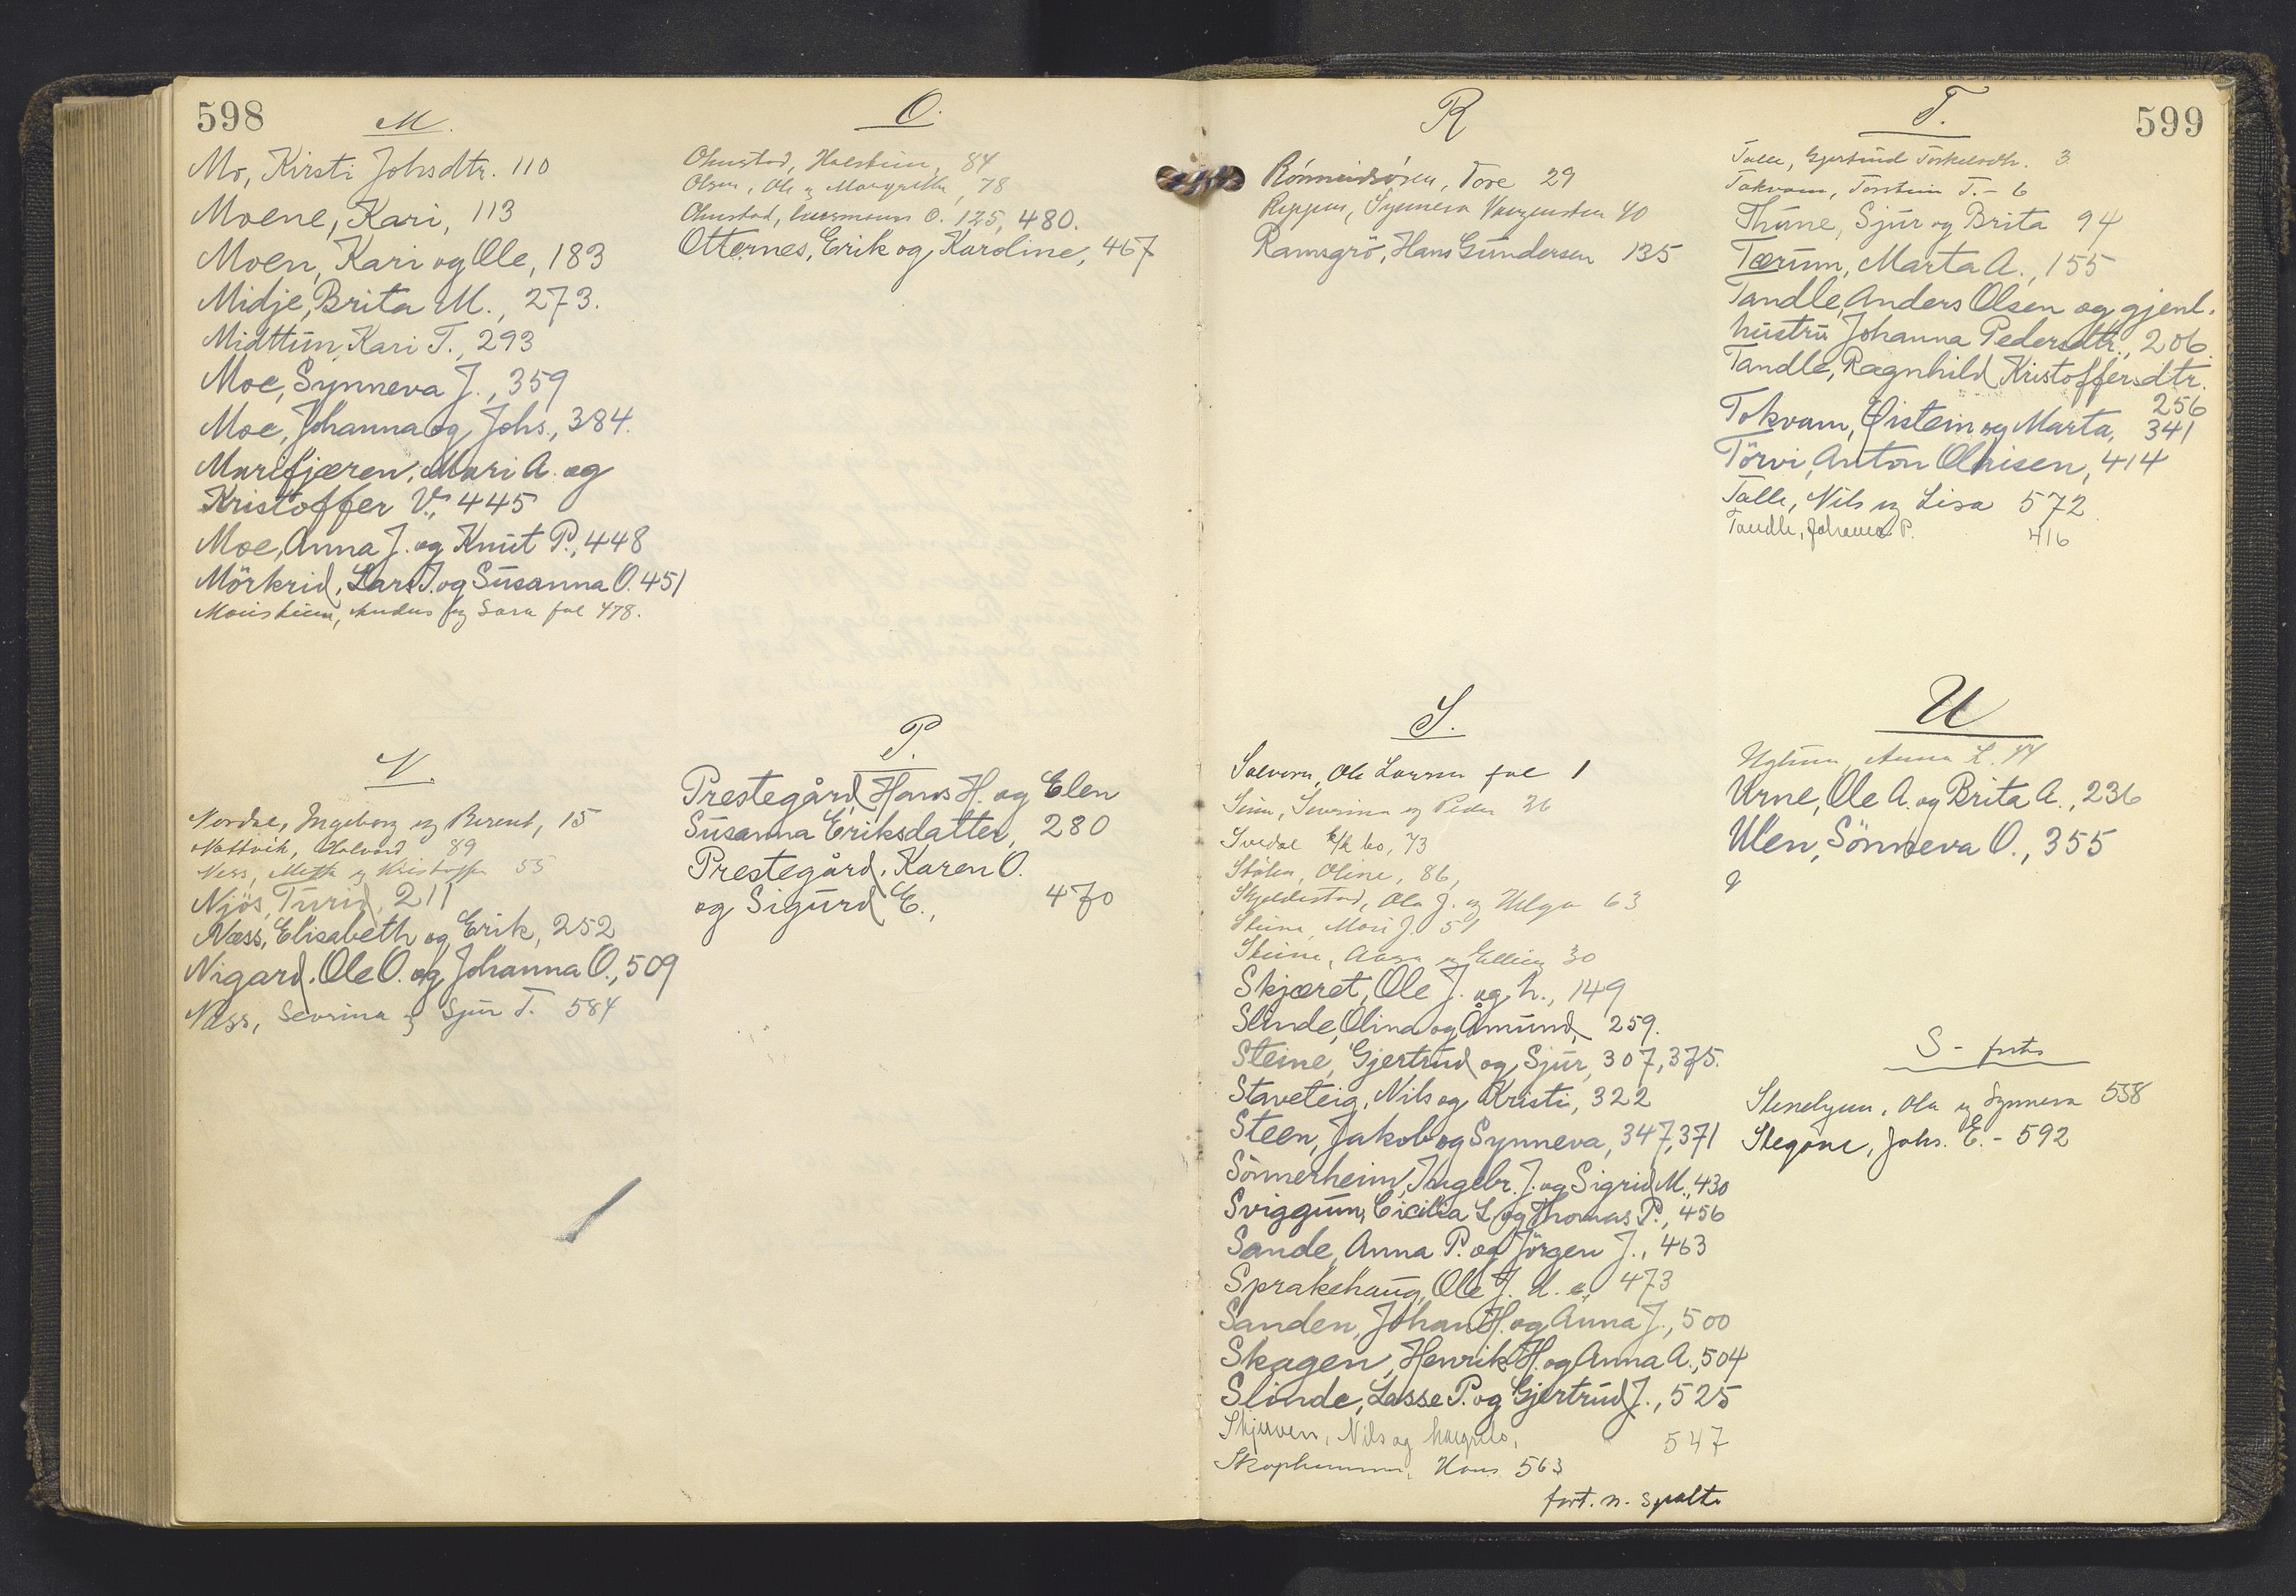 598
M.
Mo, Kirsti Johsdtr. 110
Moene, Kari, 113
Moen, Kari og Ole, 183
Midje, Brita M., 273.
Midttun, Kari T., 293
Moe, Synneva J., 359
Moe, Johanna og Johs., 384.
Marifjæren, Mari A. og
Kristoffer V., 445
Moe, Anna J. og Knut P., 448
Mörkrid, Lars J. og Susanna O. 451
Anders og Sara fol 478.
N.
Nordal, Ingeborg og Berent, 15
Nattvik, Halvard 89
Ness, Mette og Kristoffer 55
Njøs, Turid, 211
Næss, Elisabeth og Erik, 252
Nigard, Ole O. og Johanna O., 509
Næss, Sevrina og Sjur T. 584
O.
Ohnstad, Halstein, 84
Olsen, Ole og Margrethe, 78
Ohnstad, O. 125, 480.
Otternes, Erik og Karoline, 467
P.
Prestegård, Hans H. og Elen
Susanna Eriksdatter, 280
Prestegård, Karen O.
og Sigurd E., 470
R
Tore 29
Synneva 40
Ramsgrö, Hans Gundersen 135
S.
Solvorn, Ole Larsen fol 1
Severina og Peder 36
Svedal bo, 73
Oline, 86,
Skjeldestad, Ola J. og Helga 63
Steine, Mari J. 51
Steine, Aasa og Elling 30
Skjæret, Ole J. og h., 149
Slinde, Olina og Åmund, 259.
Steine, Gjertrud og Sjur, 307, 375.
Staveteig, Nils og Kristi, 322
Steen, Jakob og Synneva, 347, 371
Sönnerheim, Ingebr. J. og Sigrid M., 430
Sviggum, Cicilia L. og Thomas P., 456
Sande, Anna P. og Jörgen J., 463
Sprakehaug, Ole J. 473
Sanden, Johan H. og Anna J., 500
Skagen, Henrik H. og Anna A., 504
Slinde, Lasse P. og Gjertrud J., 525
Skjerven, Nils og 547
Hans 563
fort. n. spalte
599
T.
Talle, Gjertrud Torkelsdtr. 3
Tokvam, Torstein T. - 6
Thune, Sjur og Brita 94
Tærum, Marta A., 155
Tandle, Anders Olsen og gjenl.
hustru Johanna Pedersdtr., 206.
Tandle, Ragnhild Kristoffersdtr.
256
Tokvam, Øistein og Marta, 341
Törvi, Anton Olaisen, 414
Talle, Nils og Lisa 572
Tandle, Johanna P. 416
U
Anna L. 44
Urne, Ole A. og Brita A., 236
Ulen, Sönneva O., 355
S - forts
Ola og Synneva 558
Stegane, Johs. E. - 592